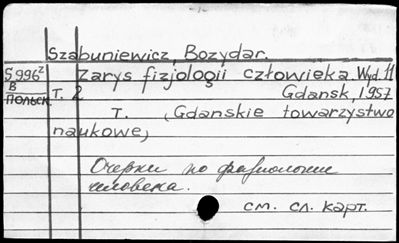 Szabuniewicz, Bozydar.
S 996² Zarys fizjologii człowieka. Wyd. II
В польск. T. 2 Gdansk, 1957
T. (Gdanskie towarzystwo
naukowe)
Очерки по физиологии
человека.
см. сл. карт.